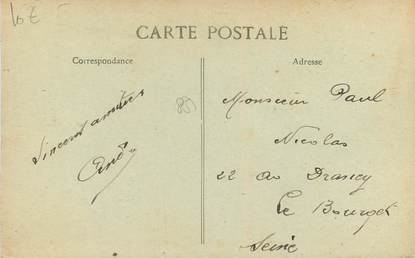 10 E
CARTE POSTALE
Correspondance
Adresse
Sincere amitiés
André
Monsieur Paul
Nicolas
22 Drancy
Le Bourget
Seine